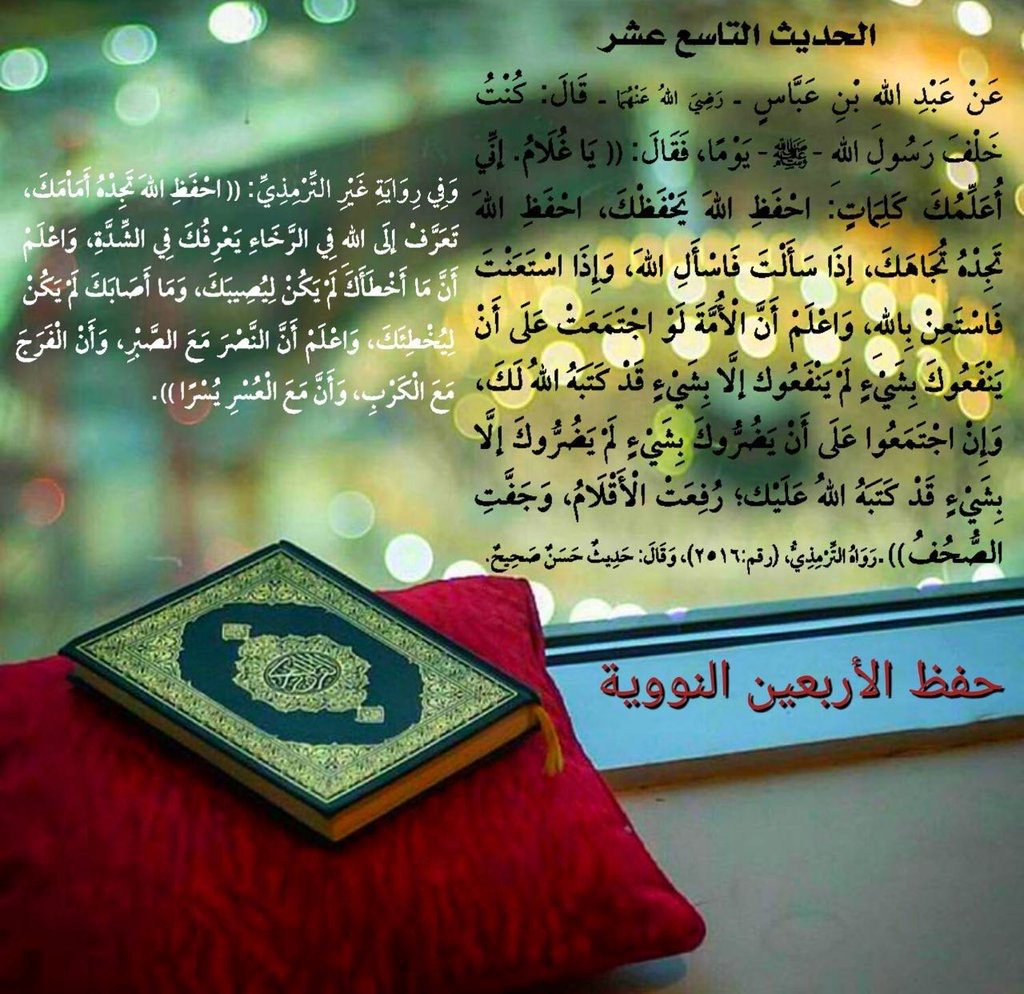 الحديث التاسع عشر
عَنْ عَبْدِ الله بْنِ عَبَّاسٍ ـ رَضِيَ اللهُ عَنْهُمَا ـ قَالَ: كُنْتُ
خَلْفَ رَسُولِ الله -ﷺ- يَوْمًا، فَقَالَ: (( يَا غُلَامُ. إِنِّي
أُعَلِّمُكَ كَلِمَاتٍ: احْفَظِ اللهَ يَحْفَظْكَ، احْفَظِ اللهَ
تَجِدْهُ تُجَاهَكَ، إِذَا سَأَلْتَ فَاسْأَلِ اللهَ، وَإِذَا اسْتَعَنْتَ
فَاسْتَعِنْ بِالله، وَاعْلَمْ أَنَّ الْأُمَّةَ لَوْ اجْتَمَعَتْ عَلَى أَنْ
يَنْفَعُوكَ بِشَيْءٍ لَمْ يَنْفَعُوك إلَّا بِشَيْءٍ قَدْ كَتَبَهُ اللهُ لَكَ،
وَإِنْ اجْتَمَعُوا عَلَى أَنْ يَضُرُّوكَ بِشَيْءٍ لَمْ يَضُرُّوكَ إلَّا
بِشَيْءٍ قَدْ كَتَبَهُ اللهُ عَلَيْك؛ رُفِعَتْ الْأَقْلَامُ، وَجَفَّتِ
الصُّحُفُ)) .رَوَاهُ التِّرْمِذِيُّ، (رقم:٢٥١٦)، وَقَالَ: حَدِيثٌ حَسَنٌ صَحِيحٌ.
وَفِي رِوَايَةِ غَيْرِ التِّرْمِذِيِّ: (( احْفَظِ اللهَ تَجِدْهُ أَمَامَكَ،
تَعَرَّفْ إلَى الله فِي الرَّخَاءِ يَعْرِفُكَ فِي الشِّدَّةِ، وَاعْلَمْ
أَنَّ مَا أَخْطَأَكَ لَمْ يَكُنْ لِيُصِيبَكَ، وَمَا أَصَابَكَ لَمْ يَكُنْ
لِيُخْطِئَكَ، وَاعْلَمْ أَنَّ النَّصْرَ مَعَ الصَّبْرِ، وَأَنْ الْفَرَجَ
مَعَ الْكَرْبِ، وَأَنَّ مَعَ الْعُسْرِ يُسْرًا )).
حفظ الأربعين النووية